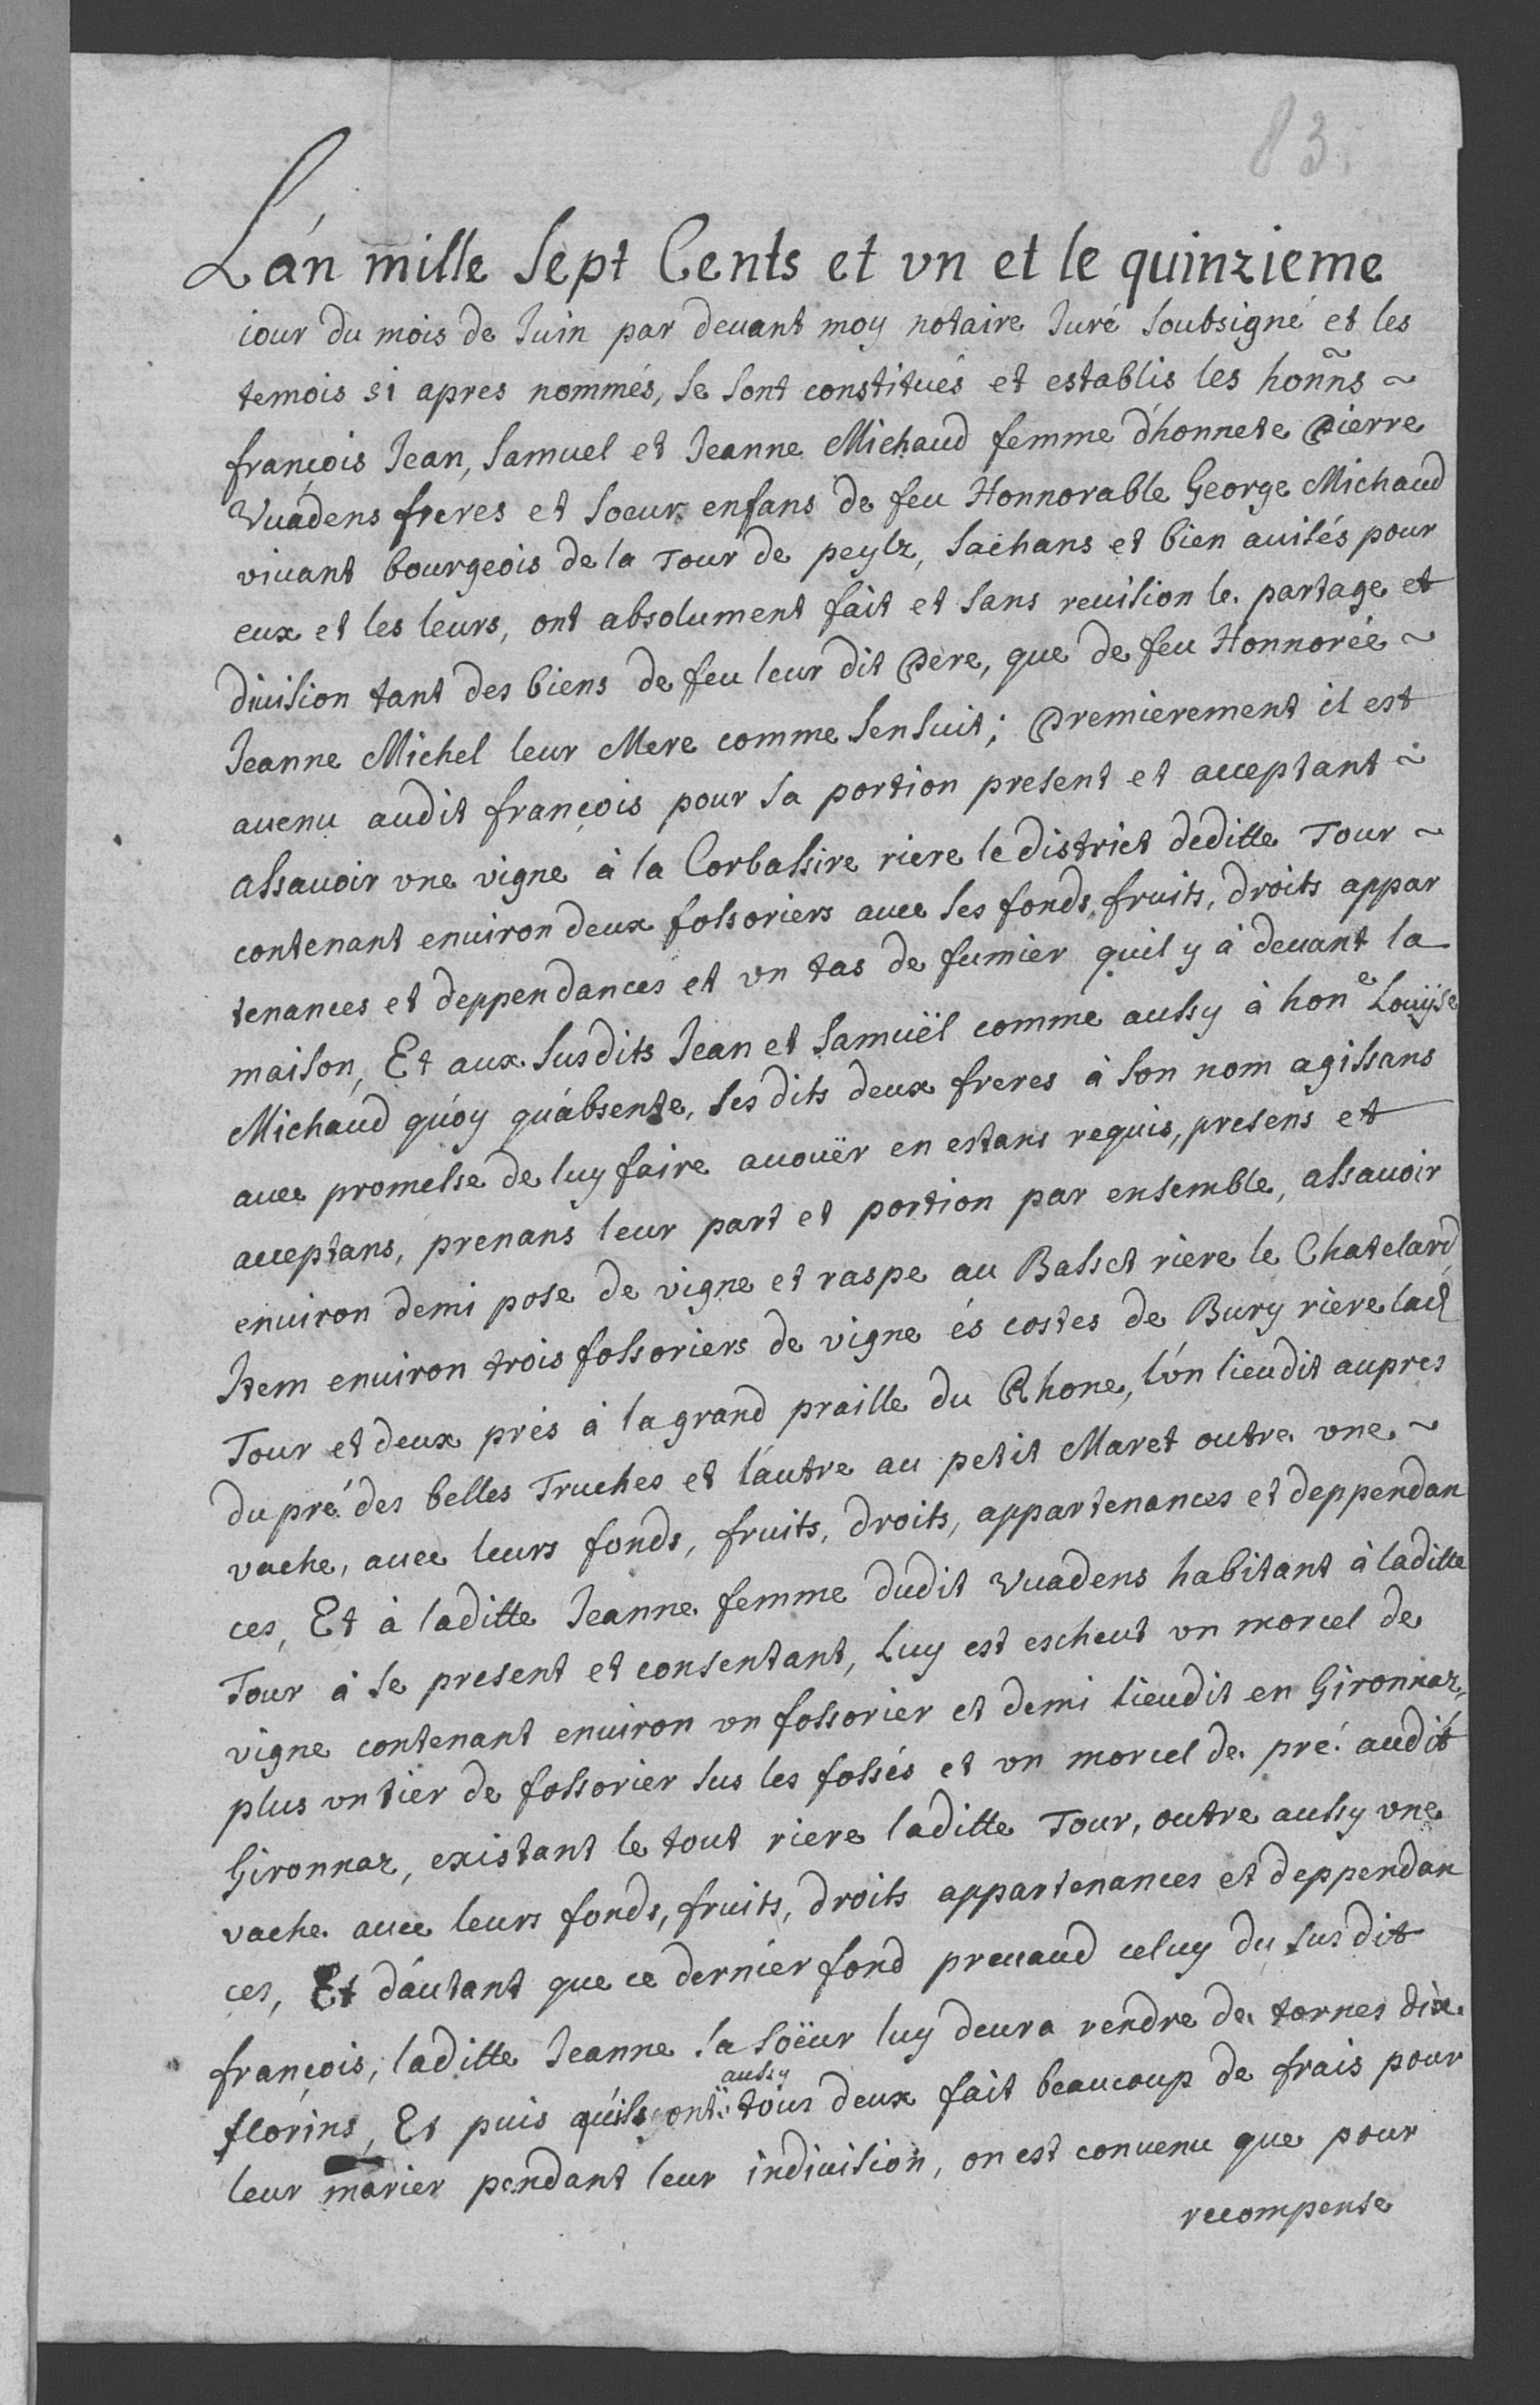 83.
L'an mille sept Cents et vn et le quinzieme
iour du mois de Juin par deuant moy notaire Juré soubsigné et les
temois si apres nommés, se sont constitués et establis les hon̄ns ~
françois Jean, Samuel et Jeanne Michaud femme d'honnete Pierre
Vuadens freres et soeur enfans de feu Honnorable George Michaud
viuant bourgeois de la Tour de peylz, sachans et bien auisés pour
eux et les leurs, ont absolument fait et sans reuision le partage et
diuision tant des biens de feu leur dit Pere, que de feu Honnorée ~
Jeanne Michel leur Mere comme sensuit; Premierement il est
auenu audit françois pour sa portion present et acceptant ~
assauoir vne vigne à la Corbassire riere le district deditte Tour ~
contenant enuiron deux fossoriers auec ses fonds, fruits, droits appar
tenances et deppendances et vn tas de fumier quil y à deuant la
maison, Et aux susdits Jean et Samuël comme aussy à hon.e Louÿse
Michaud qu'oy qu'absente, ses dits deux freres à son nom agissans
auec promesse de luy faire auouër en estans requis, presens et
acceptans, prenans leur part et portion par ensemble, assauoir
enuiron demi pose de vigne et raspe au Basset riere le Chatelard,
Item enuiron trois fossoriers de vigne és costes de Bury riere lad
Tour et deux prés à la grand praille du Rhone, l'ón lieudit aupres
du pré des belles Truches et l'autre au petit Maret outre vne ~
vache, auec leurs fonds, fruits, droits, appartenances et deppendan
ces, Et à laditte Jeanne femme dudit Vuadens habitant à laditte
Tour à se present et consentant, Luy est escheut vn morcel de
vigne contenant enuiron vn fossorier et demi lieudit en Gironnaz,
plus vn tier de fossorier sus les fossés et vn morcel de pré audit
Gironnaz, existant le tout riere laditte Tour, outre aussy vne
vache auec leurs fonds, fruits, droits appartenances et deppendan
ces, Et d'autant que ce dernier fond preuaud celuy du susdit
françois, laditte Jeanne sa söeur luy deura rendre de tornes dix
florins, Et puis qu'ils ont aussy tous deux fait beaucoup de frais pour
leur marier pendant leur indiuision, on est conuenu que pour
recompense